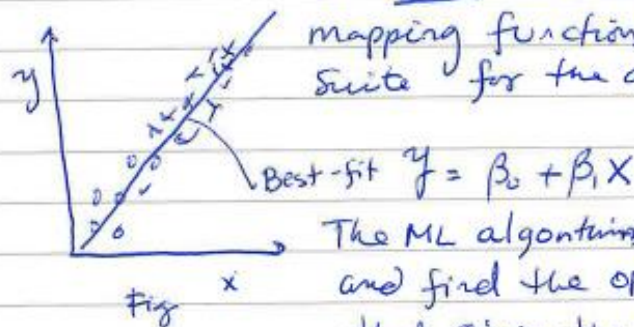 mapping function
suite for the
y
Best-fit y = β₀ + β₁x
The ML algorithm
and find the
x
Fig